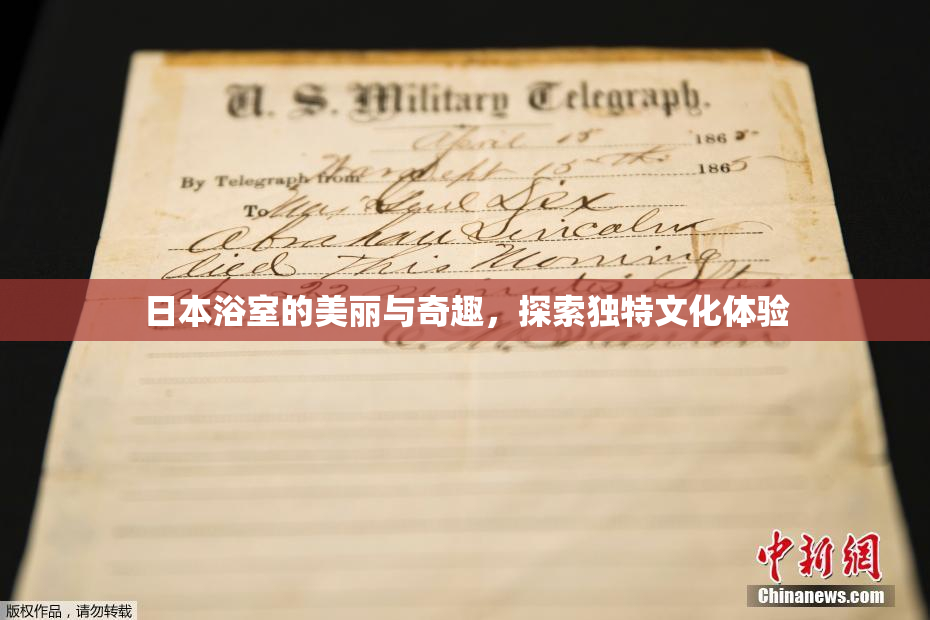 U. S. Military Telegraph.
April 15 1865
By Telegraph from War Dept 15th 1865
To Maj Genl Dix
Abraham Lincoln
died This Morning
22 minutes after
日本浴室的美丽与奇趣，探索独特文化体验
E. M. Stanton
中新网
Chinanews.com
版权作品，请勿转载